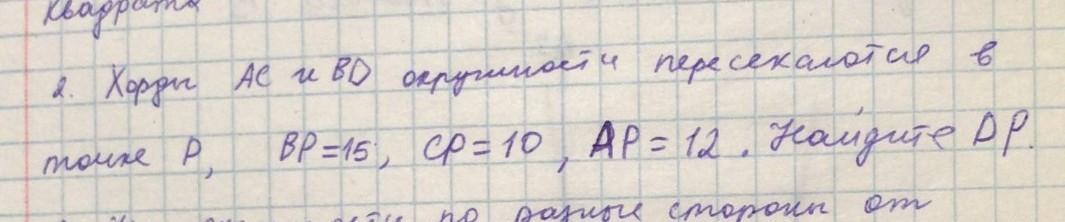 квадрата
2. Хорды AC и BD окружности пересекаются в
точке P, BP=15, CP=10, AP=12. Найдите DP.
по разные стороны от